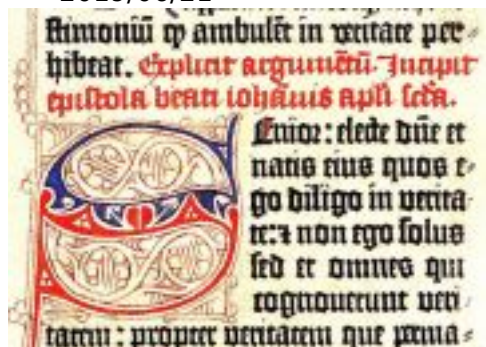 stimoniū qƺ ambulēt in veritate per-
hibeat. Explicit argumētū. Incipit
epistola beati iohānis apli scđa.
Senior: electe dn̄e et
natis eius quos e-
go diligo in verita-
te: ⁊ non ego solus
sed et omnes qui
cognouerunt veri-
tatem: propter veritatem que perma-